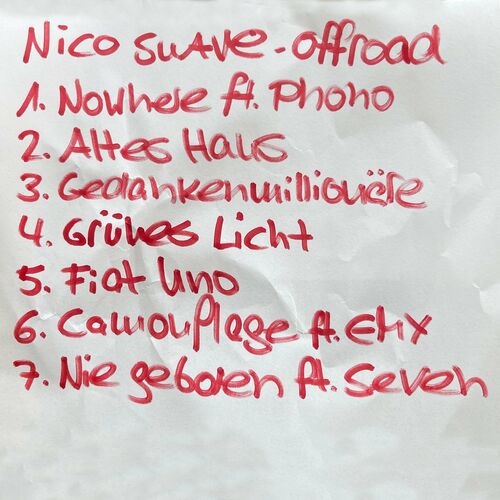 Nico Suave - Offroad
1. Nowhere ft. Phono
2. Altes Haus
3. Gedankenmillionäre
4. Grünes Licht
5. Fiat Uno
6. Camouflage ft. EMY
7. Nie geboren ft. Seven